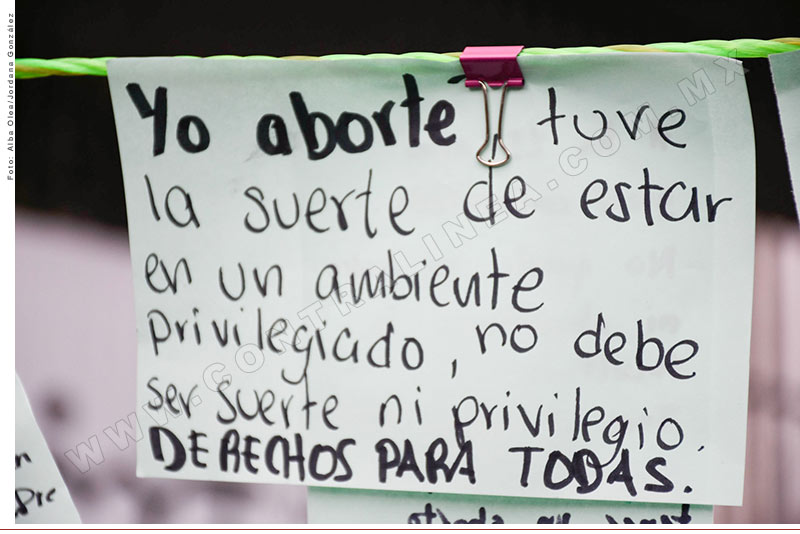 Yo aborte, tuve
la suerte de estar
en un ambiente
privilegiado, no debe
ser suerte ni privilegio.
DERECHOS PARA TODAS.
WWW.CONTRALINEA.COM.MX
Foto: Alba Olea/Jordana González